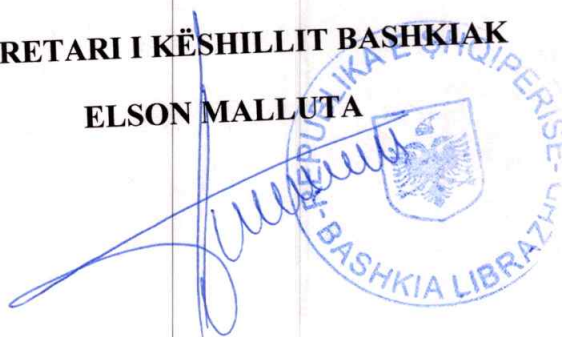 RETARI I KËSHILLIT BASHKIAK
ELSON MALLUTA
REPUBLIKA E SHQIPERISE
BASHKIA LIBRAZHD